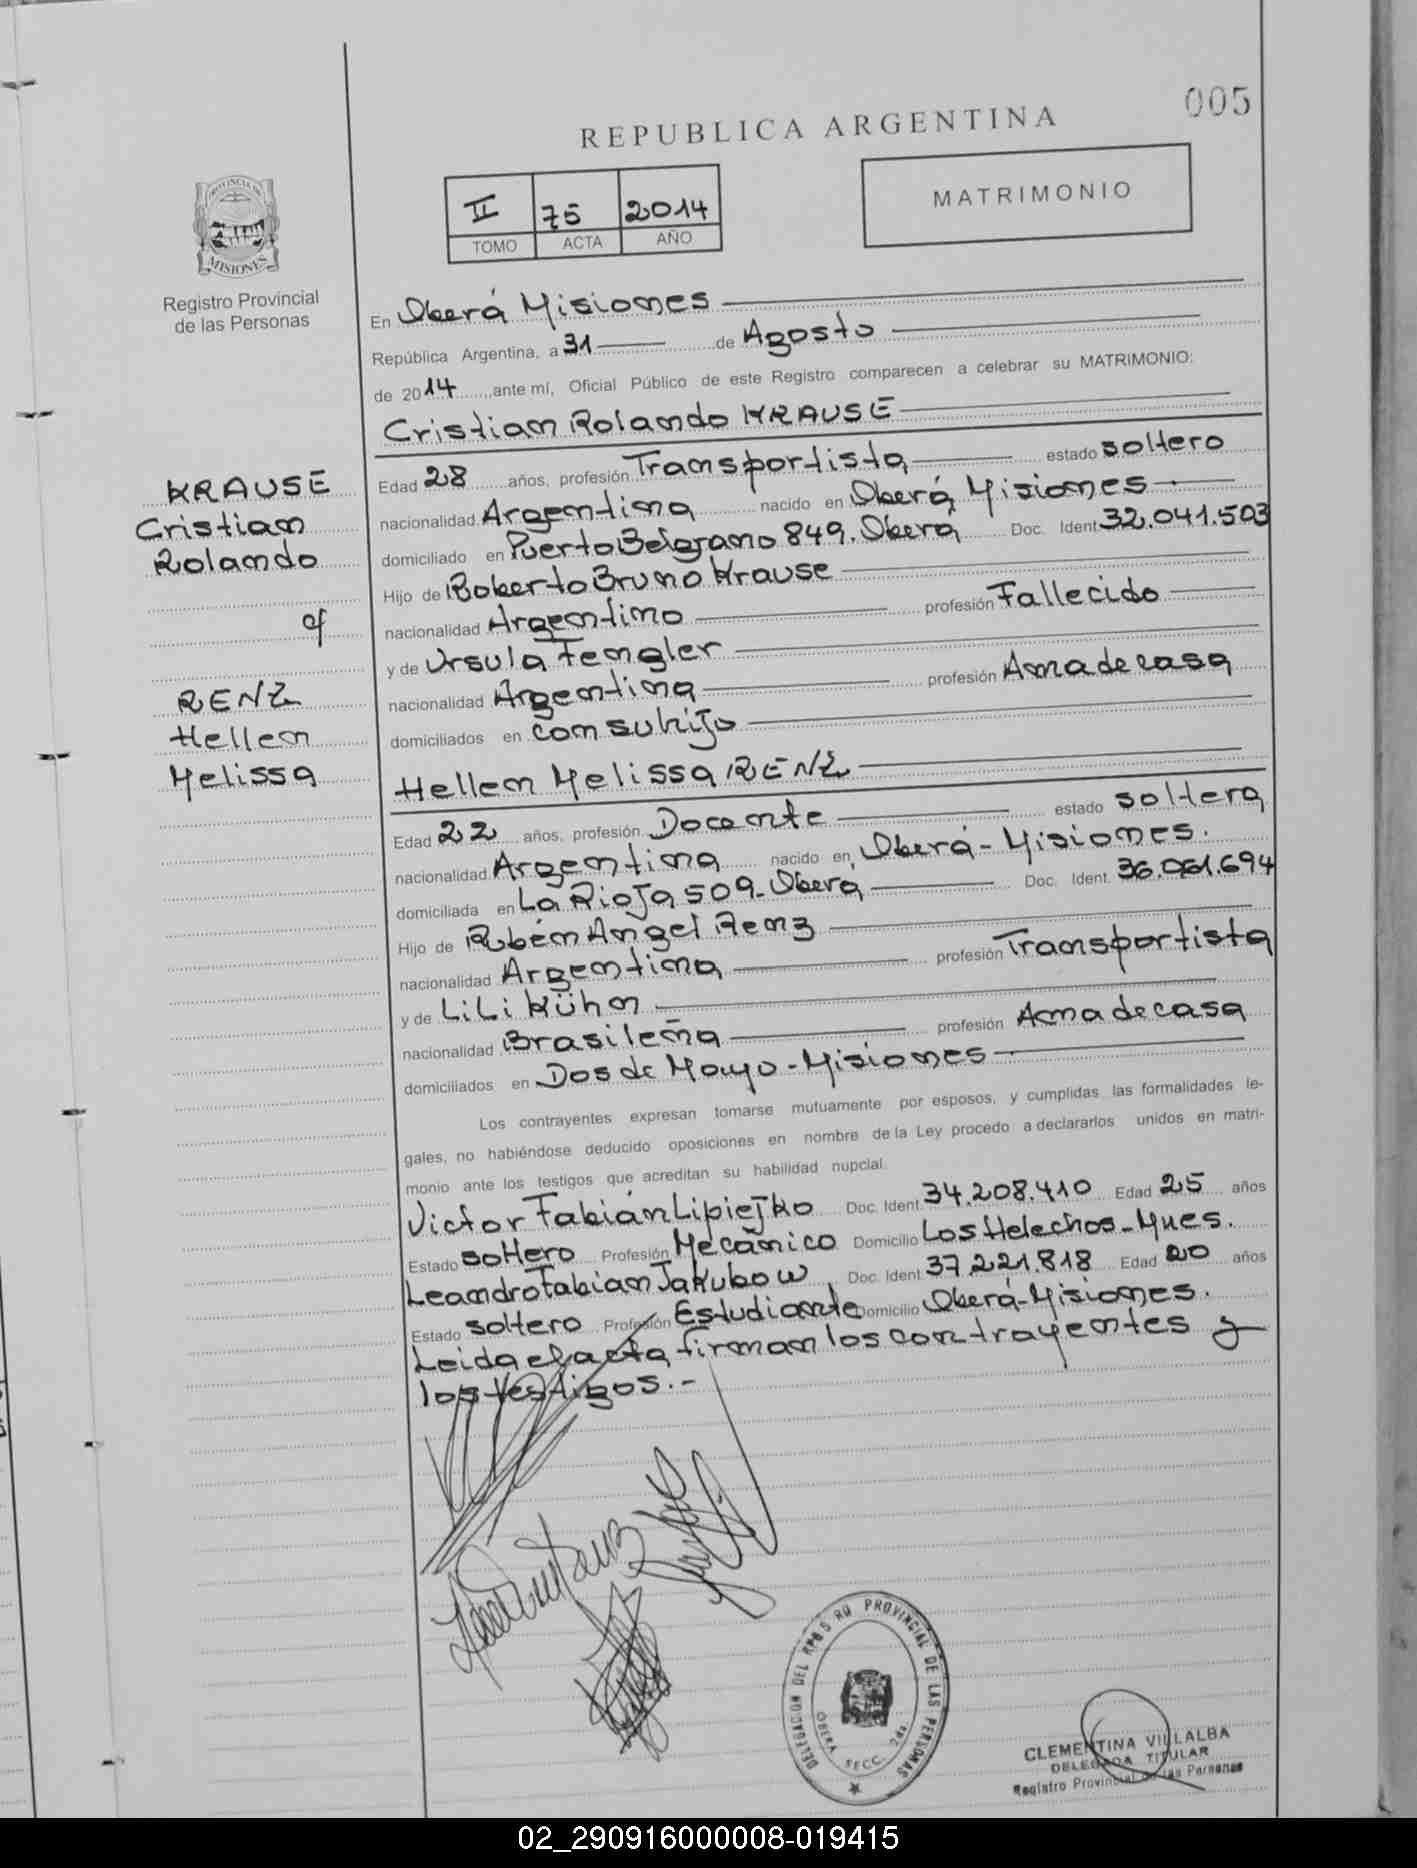 005
REPUBLICA ARGENTINA
II 75 2014
TOMO ACTA AÑO
MATRIMONIO
PROVINCIA DE MISIONES
Registro Provincial
de las Personas
En Oberá Misiones
República Argentina, a 31 de Agosto
de 2014, ante mí, Oficial Público de este Registro comparecen a celebrar su MATRIMONIO:
Cristian Rolando KRAUSE
KRAUSE
Cristian
Rolando
cf
RENZ
Hellem
Melissa
Edad 28 años, profesión Transportista estado soltero
nacionalidad Argentina nacido en Oberá, Misiones
domiciliado en Puerto Belgrano 849. Oberá Doc. Ident 32.041.503
Hijo de Roberto Bruno Krause
nacionalidad Argentino profesión Fallecido
y de Ursula Fengler
nacionalidad Argentina profesión Ama de casa
domiciliados en con su hijo
Hellem Melissa RENZ
Edad 22 años, profesión Docente estado soltera
nacionalidad Argentina nacido en Oberá - Misiones.
domiciliada en La Rioja 509 - Oberá Doc. Ident. 36.061.694
Hijo de Rubén Angel Renz
nacionalidad Argentina profesión Transportista
y de LiLi Kühn
nacionalidad Brasileña profesión Ama de casa
domiciliados en Dos de Mayo - Misiones
Los contrayentes expresan tomarse mutuamente por esposos, y cumplidas las formalidades le-
gales, no habiéndose deducido oposiciones en nombre de la Ley procedo a declararlos unidos en matri-
monio ante los testigos que acreditan su habilidad nupcial.
Victor Fabián Lipiejko Doc. Ident. 34.208.410 Edad 25 años
Estado soltero Profesión Mecánico Domicilio Los Helechos - Mnes.
Leandro Fabian Jakubow Doc. Ident. 37.221.818 Edad 20 años
Estado soltero Profesión Estudiante Domicilio Oberá - Misiones.
Leida el acta, firman los contrayentes y
los testigos.-
PROVINCIAL DE LAS PERSONAS
DELEGACION DEL
OBERA SECC. 2da
CLEMENTINA VILLALBA
DELEGADA TITULAR
Registro Provincial de las Personas
02_290916000008-019415